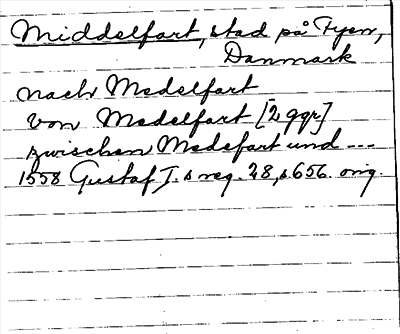 Middelfart, stad på Fyen,
Danmark
nach Medelfart
von Medelfart [2 ggr]
zwischen Medefart und ---
1558 Gustaf I. s reg. 28, s. 656. orig.